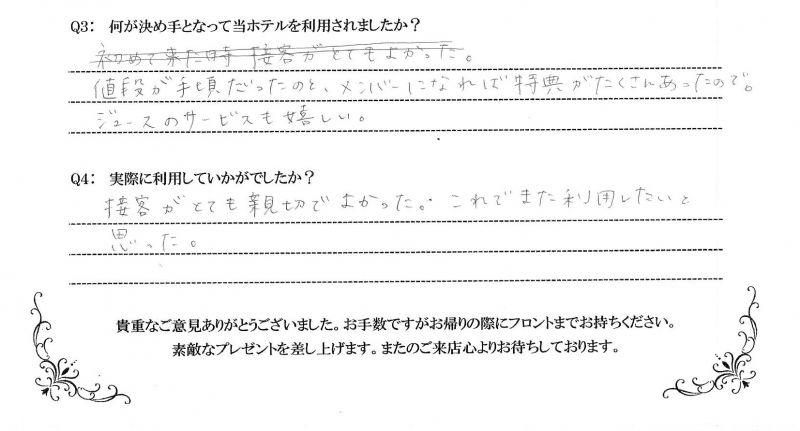 Q3: 何が決め手となって当ホテルを利用されましたか?
初めて来た時 接客がとてもよかった。
値段が手頃だったのと、メンバーになれば特典がたくさんあったので。
ジュースのサービスも嬉しい。
Q4: 実際に利用していかがでしたか?
接客がとても親切でよかった。これでまた利用したいと
思った。
貴重なご意見ありがとうございました。お手数ですがお帰りの際にフロントまでお持ちください。
素敵なプレゼントを差し上げます。またのご来店心よりお待ちしております。